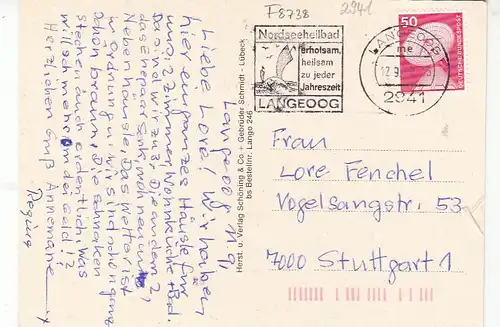 F8738
2941
Nordseeheilbad
Erholsam,
heilsam
zu jeder
Jahreszeit
LANGEOOG
50
DEUTSCHE BUNDESPOST
LANGEOOG 1
me
12.9.
2941
Frau
Lore Fenchel
Vogelsangstr. 53
7000 Stuttgart 1
Langeoog 11.9.
Liebe Lore! Wir haben
hier ein ganzes Häusle für
uns 2 Zimmer Wohnküche + Bad.
Da sind wir zu 3. Die andern 2,
das Ehepaar Senk, wohnen im
Nebenhäusle. Das Wetter ist
in Ordnung u. wir sind schon ganz
schön braun. Die Schnaken
stechen auch ordentlich. Was
will sch mehr an der Geld!?
Herzlichen Gruß Annemarie
Herst. u. Verlag Schöning & Co + Gebrüder Schmidt - Lübeck
bs Bestellnr. Lango 246